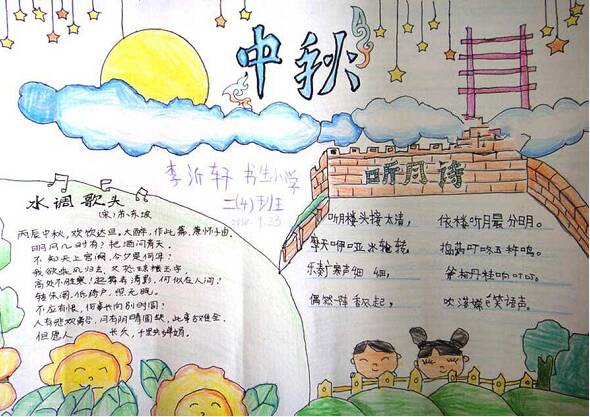 中秋
李沂轩 书生小学
二(4)班
9.23
水调歌头
(宋)苏东坡
丙辰中秋,欢饮达旦,大醉,作此篇,兼怀子由。
明月几时有?把酒问青天。
不知天上宫阙,今夕是何年?
我欲乘风归去,又恐琼楼玉宇,
高处不胜寒!起舞弄清影,何似在人间?
转朱阁,低绮户,照无眠。
不应有恨,何事长向别时圆?
人有悲欢离合,月有阴晴圆缺,此事古难全。
但愿人 长久,千里共婵娟。
听月诗
听月楼头接太清, 依楼听月最分明。
摩天咿哑冰轮转, 捣药叮咚玉杵鸣。
乐奏广寒声细细, 斧柯丹桂响叮叮。
偶然一阵香风起, 吹落嫦娥笑语声。